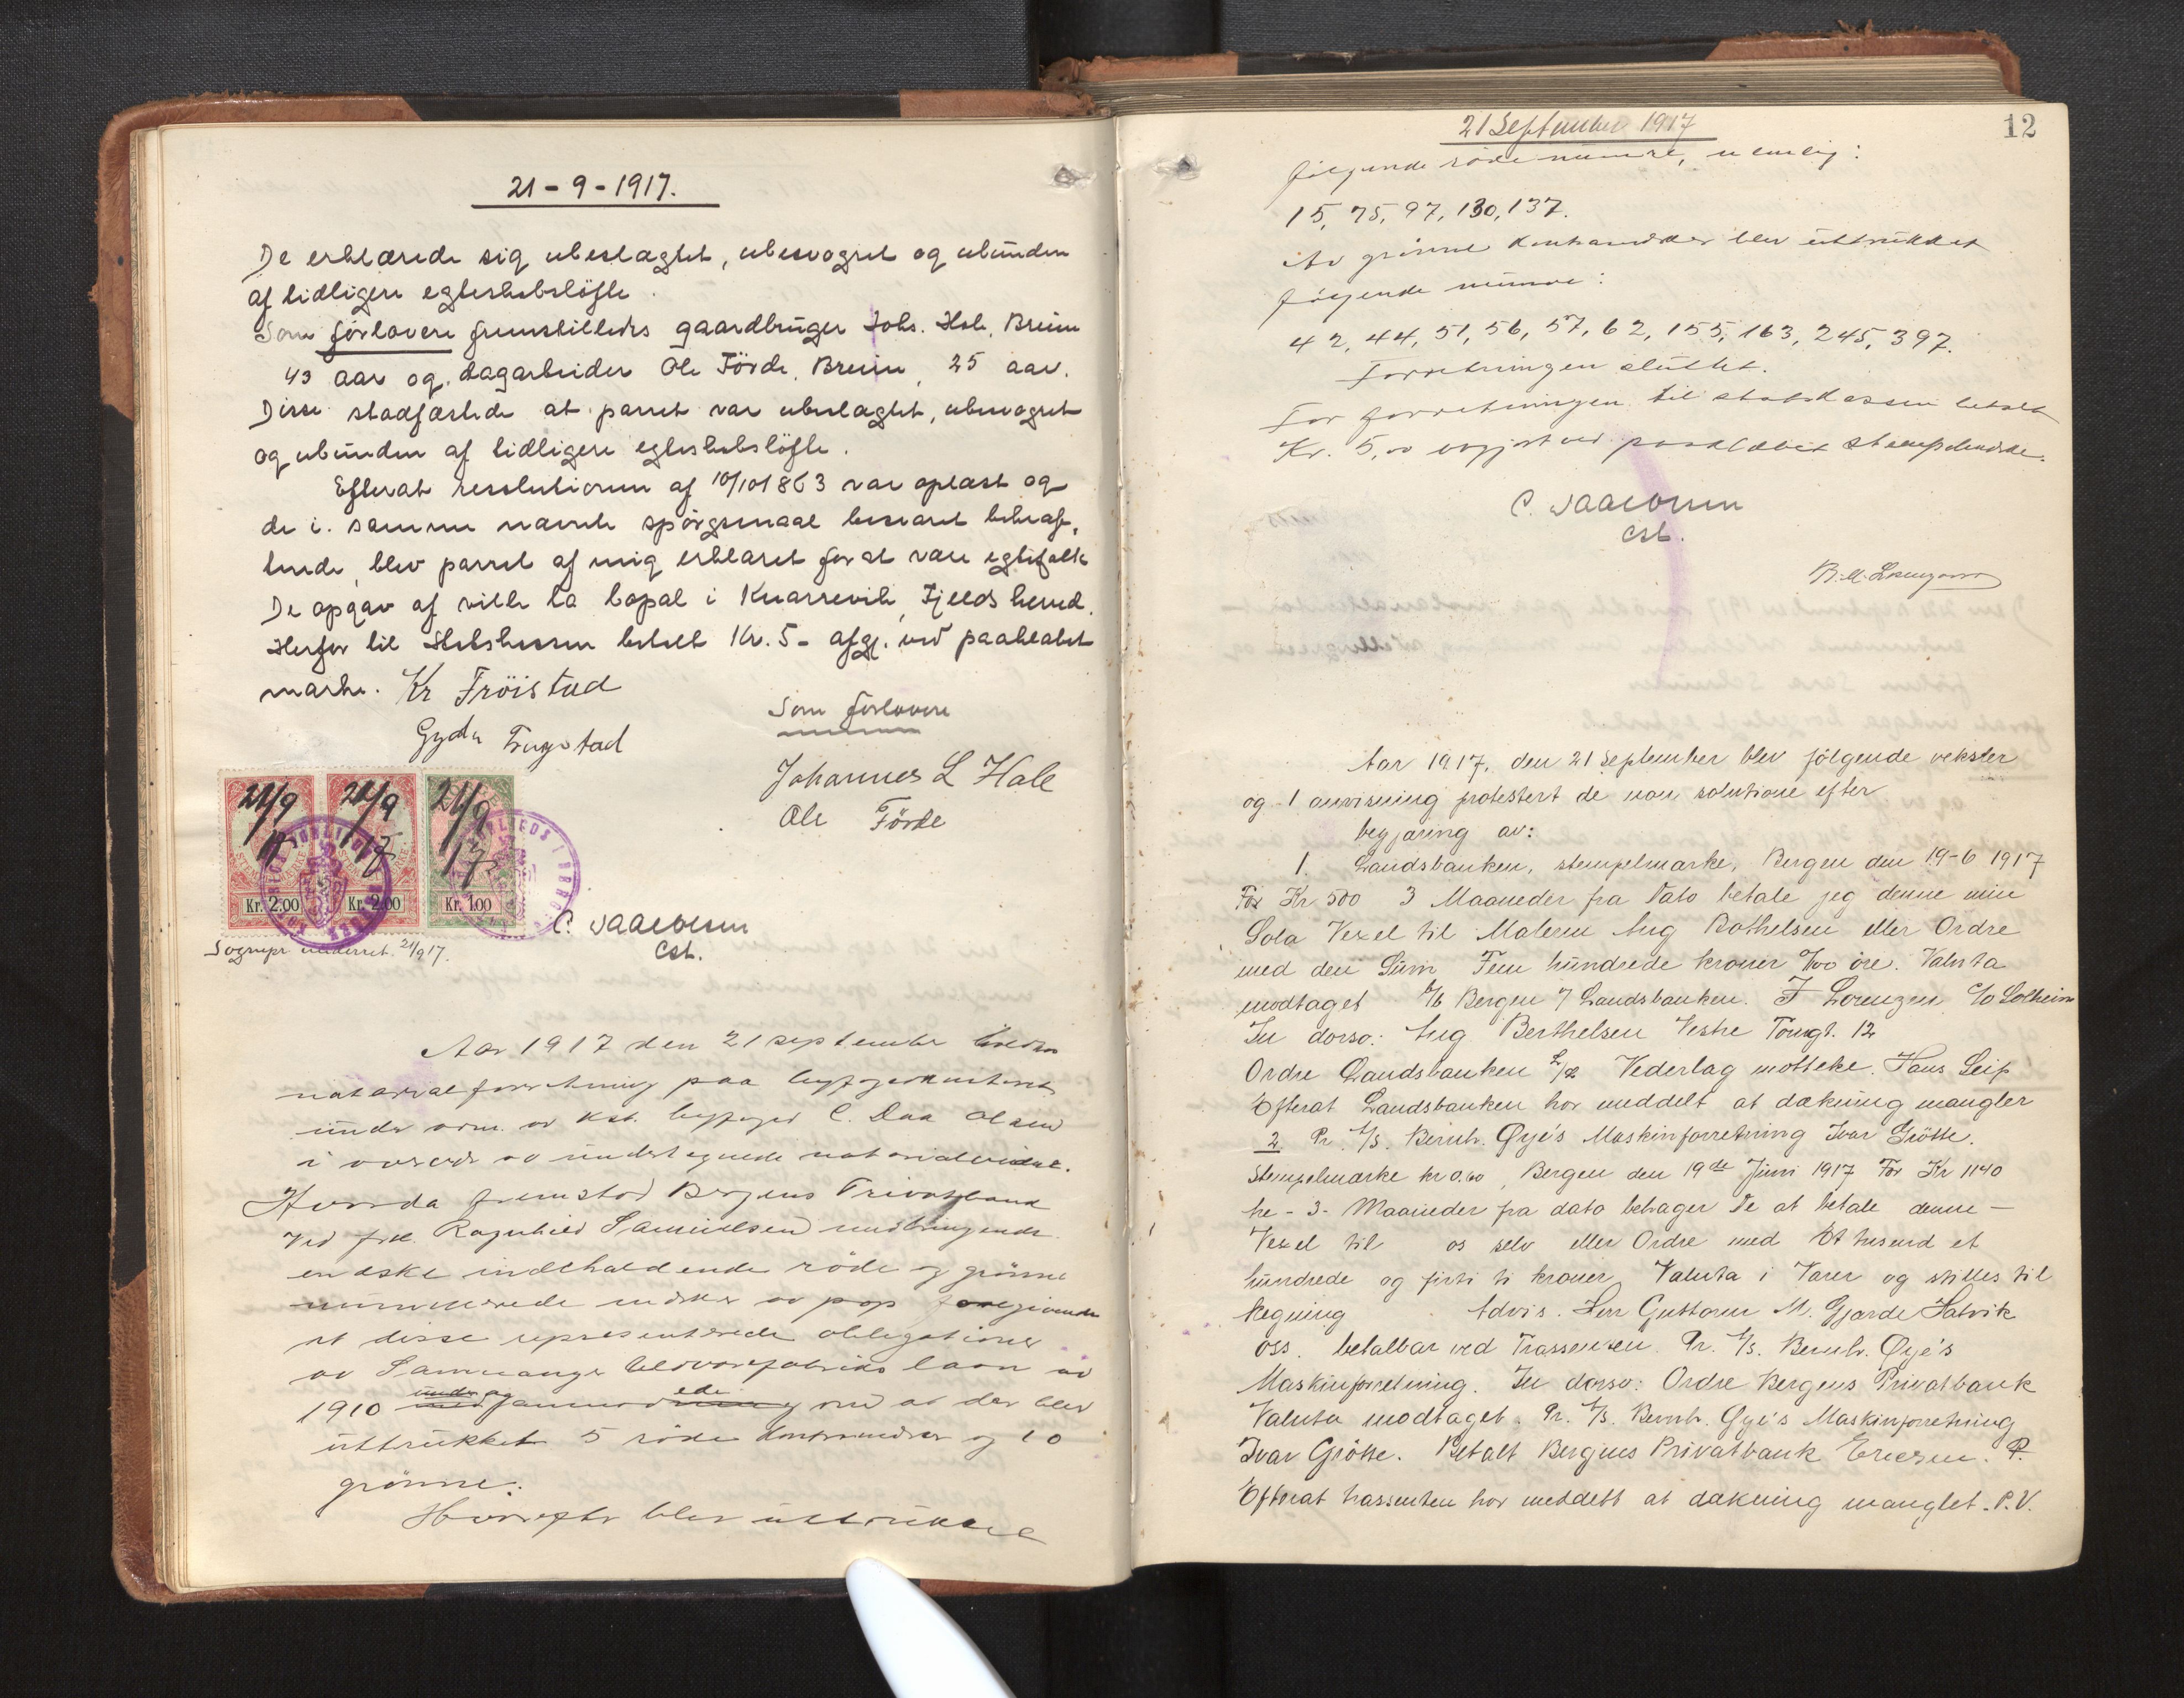 21-9-1917.
De erklærede sig ubeslagtet, ubesvogret og ubunden
af tidligere egteskabsløfte.
Som forlovere fremstilledes gaardbruger Johs. Hole, Breim
43 aar og dagarbeider Ole Förde, Breim, 25 aar.
Disse stadfæstede at parret var ubeslagtet, ubesvogret
og ubunden af tidligere egteskabsløfte.
Efterat resolutionen af 10/10 1863 var oplæst og
de i samme nævnte spörgsmaal besvaret bekræf-
tende, blev parret af mig erklæret for at være egtefolk
De opgav af ville ta bopæl i Knarrevik, Fjelds herred.
Herfor til Statskassen betalt Kr. 5- afgj. ved paaklæbet
marke. Kr Fröistad
Gyda Fröystad
Som forlovere
Johannes L Hole
Ole Förde
21/9 17
21/9 17
21/9 17
Kr. 2,00
Kr. 2,00
Kr. 1,00
C. Daae Olsen
cst.
Sognepr. underret. 21/9 17.
Aar 1917 den 21 september holdtes
notarialforretning paa byfogedkontoret
under adm. av kst. byfoged C. Daa Olsen
i overvær av undertegnede notarialvidne.
Hvorda fremstod Bergens Privatbank
ved frk. Ragnhild Samuelsen medbringende
en æske indeholdende röde og grönne
nummererede merker av pap foregivende
at disse representerede obligationer
av Samnanger Uldvarefabriks laan av
1910 anmodede om at der blev
uttrukket 5 röde kontramerker og 10
grönne.
Hvorefter blev uttrukket
21 September 1917
12
følgende röde numre, nemlig:
15, 75, 97, 130, 137.
Av grönne kontramerker blev uttrukket
følgende numre:
42, 44, 51, 56, 57, 62, 155, 163, 245, 397.
Forretningen sluttet.
For forretningen til statskassen betalt
Kr. 5,00 avgjort ved paaklæbet stempelmerke.
C. Daae Olsen
cst.
Aar 1917, den 21 september blev følgende veksler
og 1 anvisning protestert de non solutione efter
begjæring av:
1. Landsbanken, stempelmærke, Bergen den 19-6 1917
For Kr 500 3 Maaneder fra Dato betale jeg denne min
Sola Vexel til Maleren Aug Bothelsen eller Ordre
med den Sum Fem hundrede kroner %00 öre. Valuta
modtaget Bergen Landsbanken. F Lorenzen c/o Solheim
In dorso: Aug Berthelsen Vestre Torvgt. 12
Ordre Landsbanken Vederlag motteke. Hans Seip
Efterat Landsbanken har meddelt at dækning mangler
2 Pr. A/S. Bernh. Øye's Maskinforretning Ivar Grötte.
Stempelmærke kr 0.60, Bergen den 19de Juni 1917 For Kr 1140
he - 3 - Maaneder fra dato behager De at betale denne –
Vexel til os selv eller Ordre med Et tusend et
hundrede og firti ti kroner Valuta i Varer og stilles til
Regning Advis. Herr Guttorm M. Gjærde Hatvik
oss. betalbar ved Trassenten. Pr. A/S. Bernh. Øye's
Maskinforretning. In dorso: Ordre Bergens Privatbank
Valuta modtaget. Pr. A/S. Bernh. Øye's Maskinforretning
Ivar Grötte. Betalt Bergens Privatbank Ericsen. P.
Efterat trassenten har meddelt at dækning manglet. P.V.